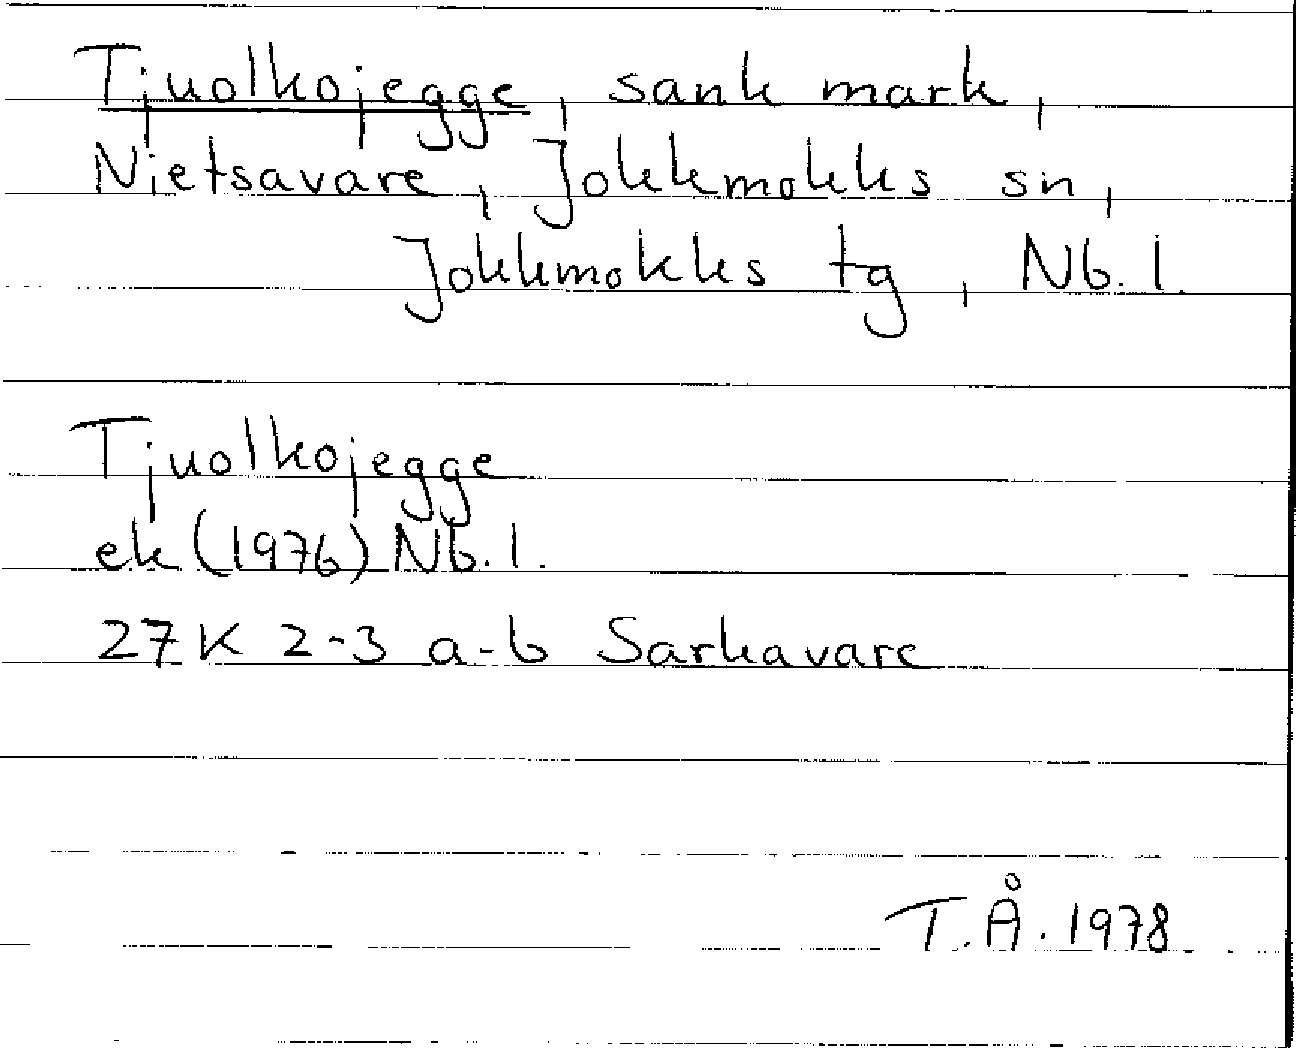 Tjuolkojegge, sank mark,
Nietsavare, Jokkmokks sn,
Jokkmokks tg, Nb. l.
Tjuolkojegge
ek (1976) Nb. l.
27 K 2-3 a-b Sarkavare
T. Å. 1978